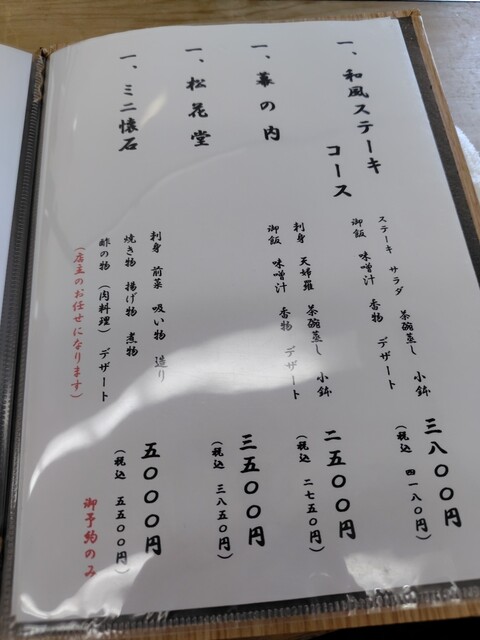 一、和風ステーキ
コース
ステーキ サラダ 茶碗蒸し 小鉢
御飯 味噌汁 香物 デザート
三八〇〇円
(税込 四一八〇円)
一、幕の内
刺身 天婦羅 茶碗蒸し 小鉢
御飯 味噌汁 香物 デザート
二五〇〇円
(税込 二七五〇円)
一、松花堂
三五〇〇円
(税込 三八五〇円)
一、ミニ懐石
刺身 前菜 吸い物 造り
焼き物 揚げ物 煮物
酢の物 (肉料理) デザート
(店主のお任せになります)
五〇〇〇円
(税込 五五〇〇円)
御予約のみ